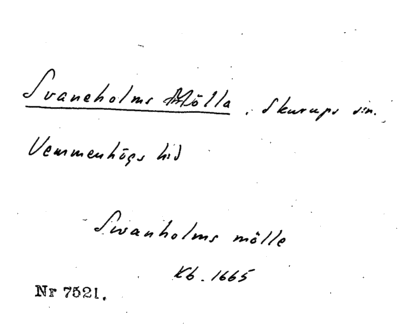 Svaneholms Mölla, Skurups sn.
Vemmenhögs hd
Swanholms mölle
Kb. 1665
Nr 7521.